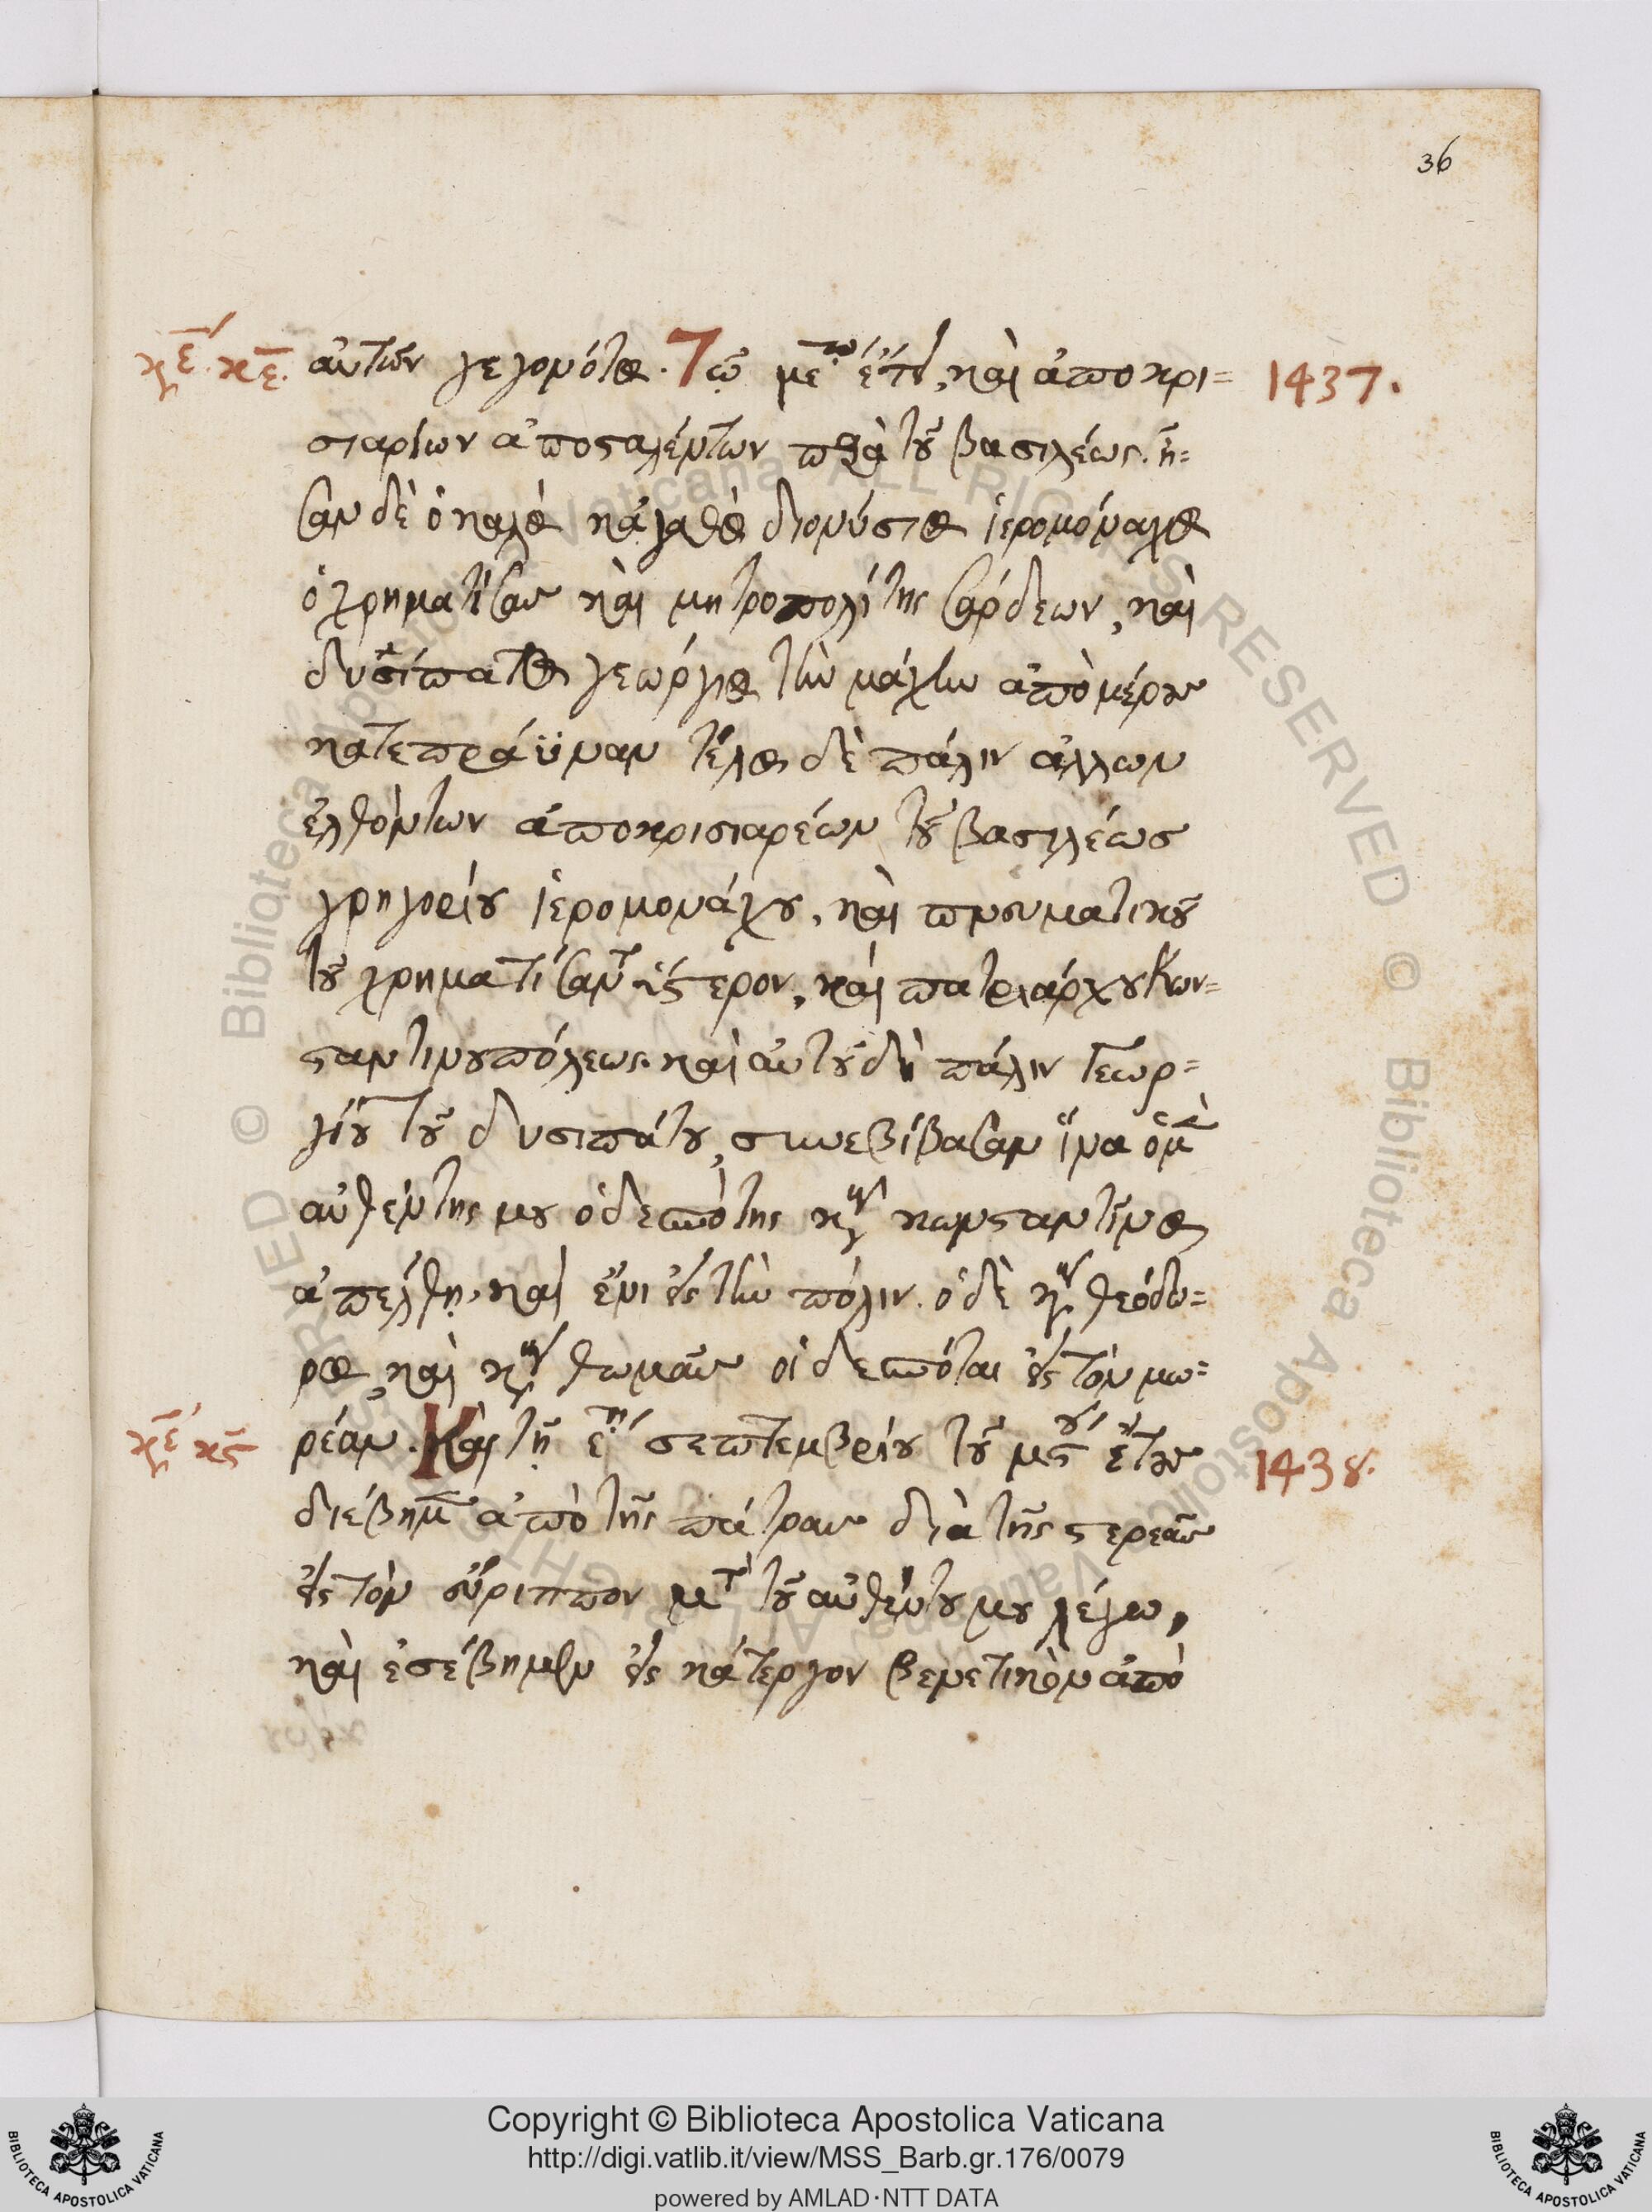 36
κεφ. κε. αὐτῶν γεγονότος. Τῷ με^ῳ ἔτει, καὶ ἀποκρι= 1437.
σιαρίων ἀποσταλέντων παρὰ τοῦ βασιλέως. ἦ=
σαν δὲ ὁ καλὸς κἀγαθὸς διονύσιος ἱερομόναχος
ὁ χρηματίσας καὶ μητροπολίτης σάρδεων, καὶ
δυσίπατος γεώργιος τὴν μάχην ἀπὸ μέρους
κατεπράϋναν τέλος δὲ πάλιν ἄλλων
ἐλθόντων ἀποκρισιαρέων τοῦ βασιλέως
γρηγορίου ἱερομονάχου, καὶ πνευματικοῦ
τοῦ χρηματίσαντ ὕστερον, καὶ πατριάρχου Κων=
σταντινουπόλεως. καὶ αὐτοῦ δὴ πάλιν Γεωρ=
γίου τοῦ δυσιπάτου, συνεβίβασαν ἵνα ὁ μὲν
αὐθέντης μου ὁ δεσπότης κὺρ κωνσταντῖνος
ἀπέλθῃ, καὶ ἔνι εἰς τὴν πόλιν. ὁ δὲ κὺρ θεόδω=
ρος, καὶ κὺρ θωμᾶς οἱ δεσπόται εἰς τὸν μω=
κεφ κϛ ρέαν. Καὶ τῇ ε^ῃ σεπτεμβρίου τοῦ μϛ^ου ἔτους 1438.
διέβημεν ἀπὸ τῆς πάτρας διὰ τῆς στερεᾶς
εἰς τὸν εὔριππον μετὰ τοῦ αὐθέντου μου λέγω,
καὶ ἐσέβημεν εἰς κάτεργον βενετικὸν ἀπὸ
Copyright © Biblioteca Apostolica Vaticana
http://digi.vatlib.it/view/MSS_Barb.gr.176/0079
powered by AMLAD·NTT DATA